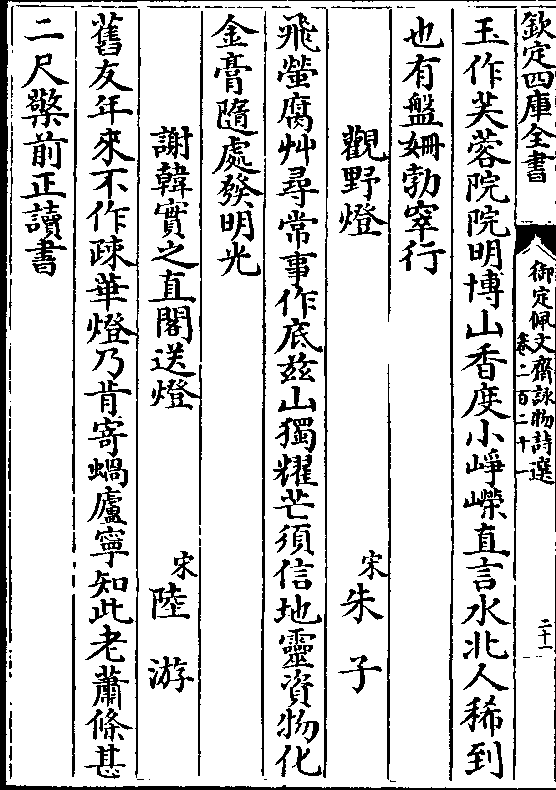 欽定四庫全書
御定佩文齋詠物詩選
卷二百二十一
二十一
玉作芙蓉院院明博山香度小崢嶸直言水北人稀到
也有盤姍勃窣行
觀野燈
宋朱子
飛螢腐艸尋常事作底兹山獨耀芒須信地靈資物化
金膏隨處發明光
謝韓實之直閣送燈
宋陸游
舊友年來不作疎華燈乃肯寄蝸廬寧知此老蕭條甚
二尺檠前正讀書